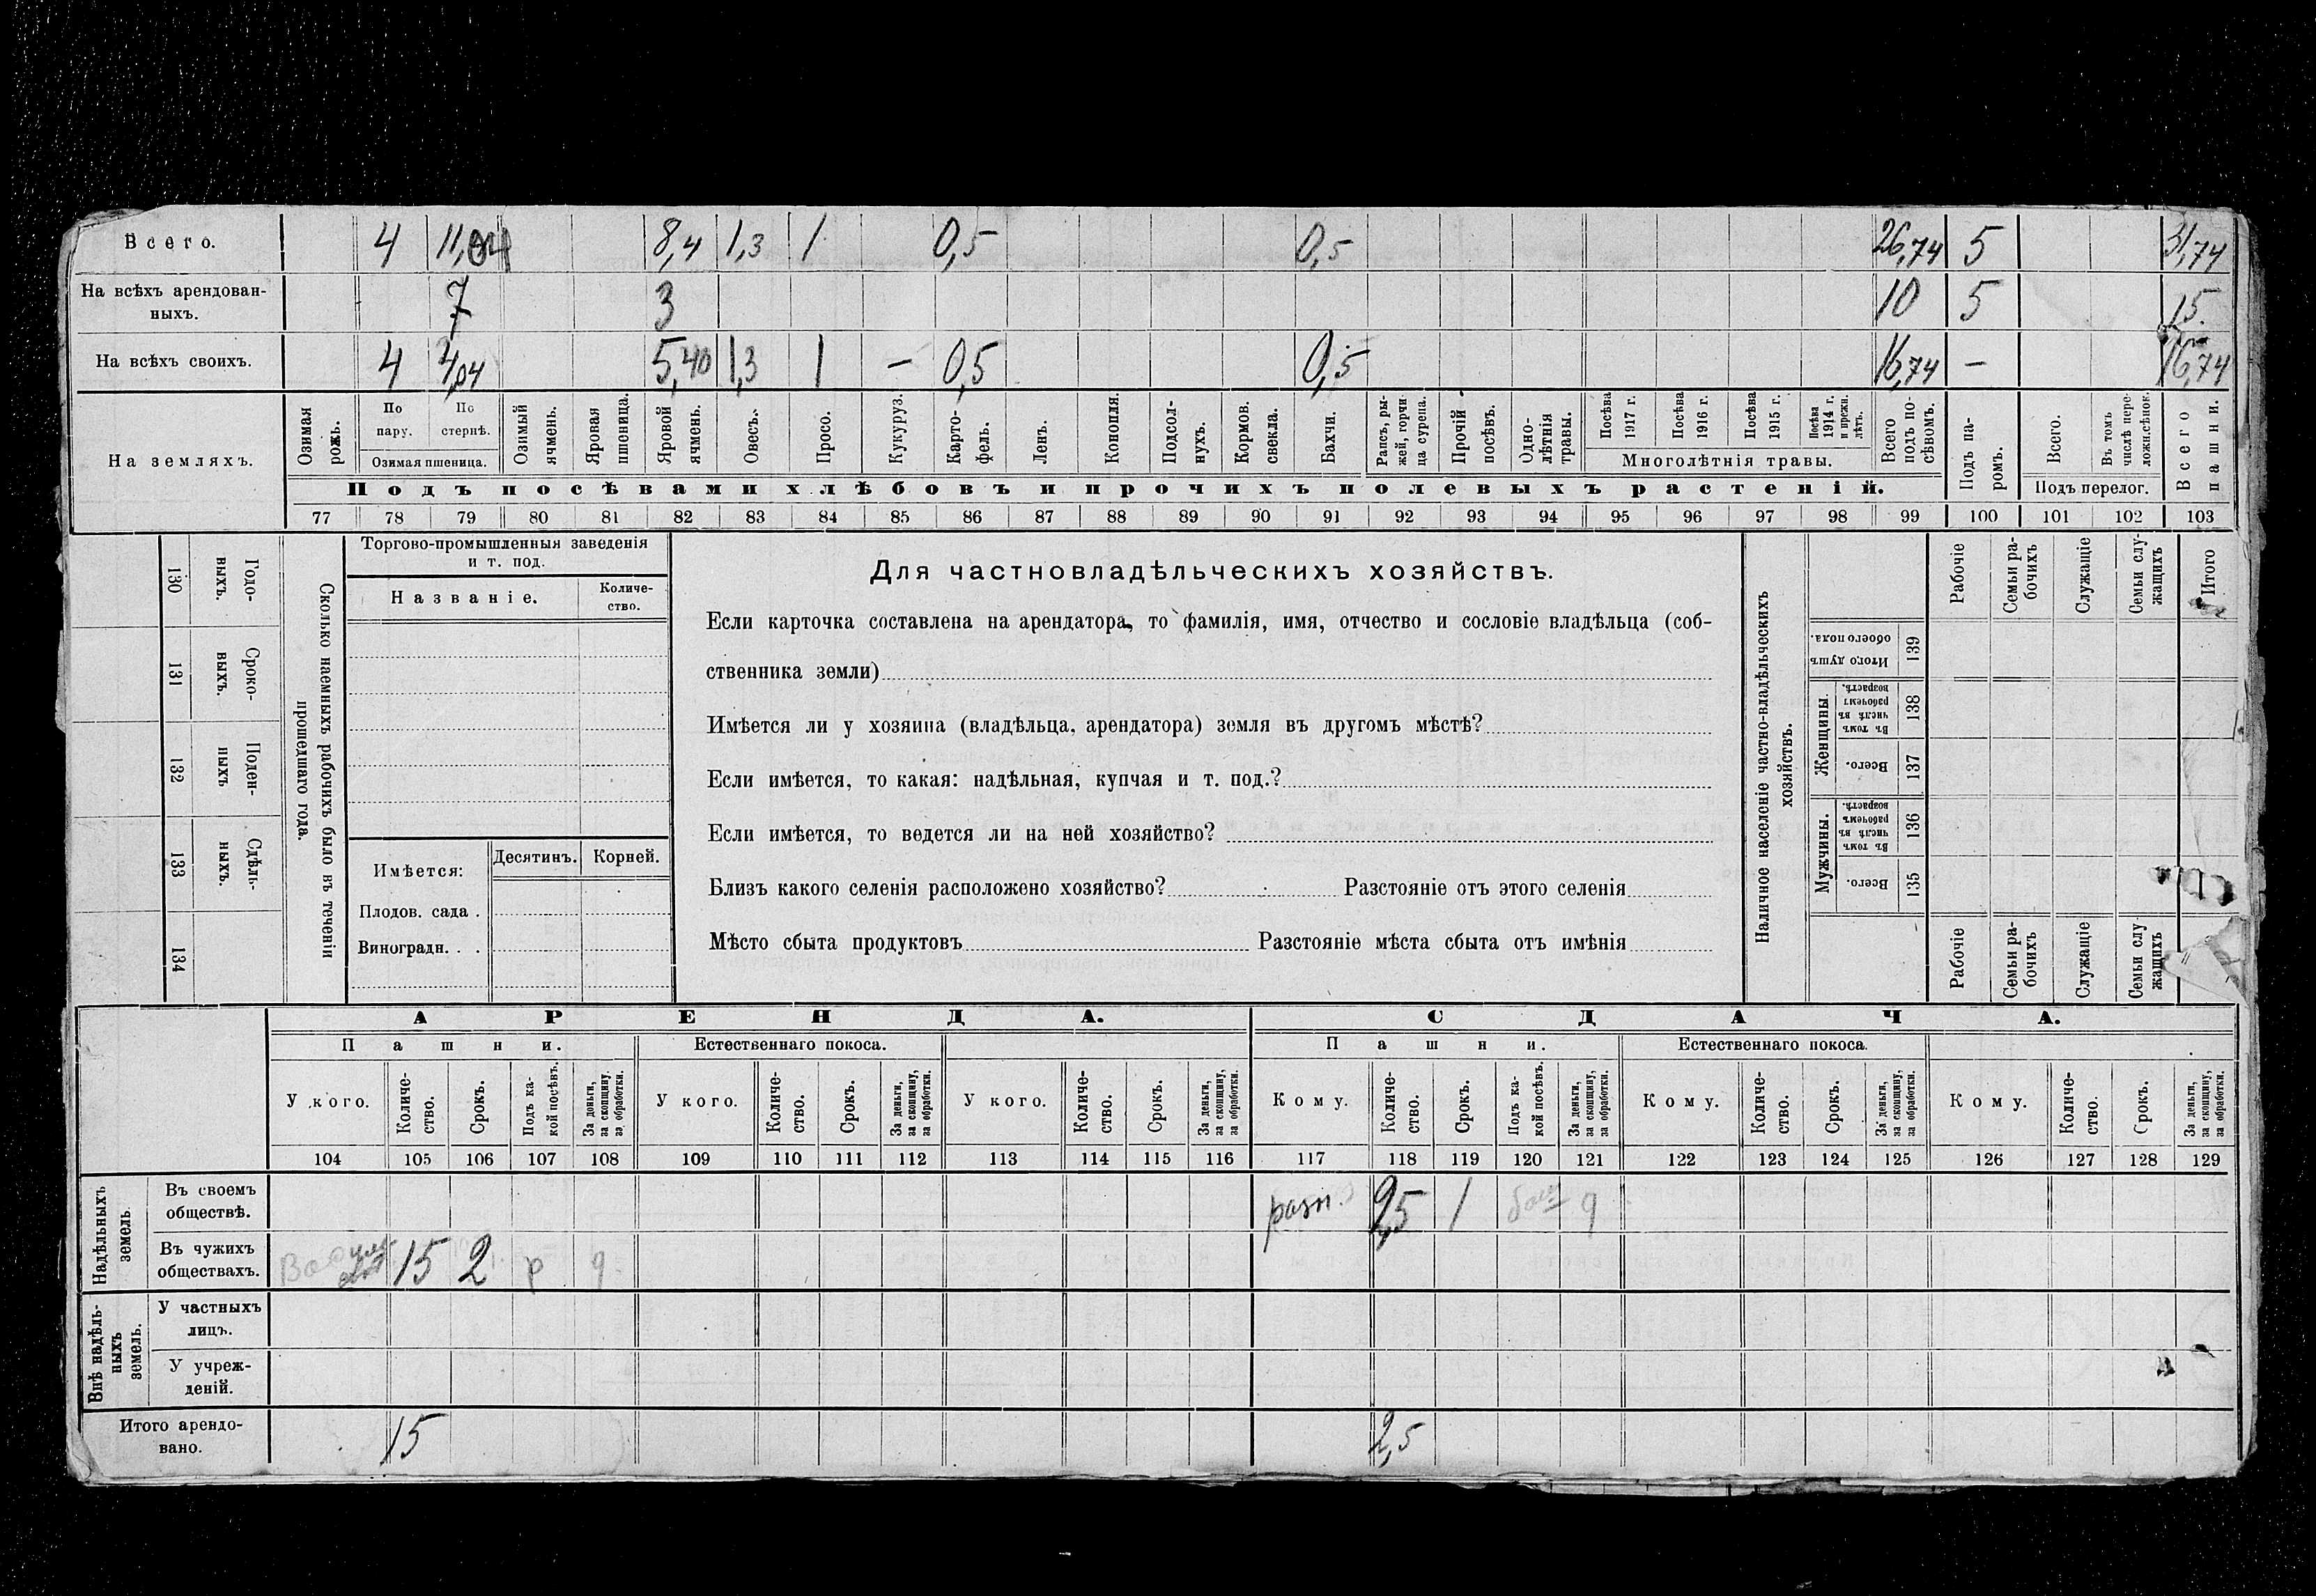 Всего. 4 11,04 8,4 1,3 1 0,5 0,5 26,74 5 31,74
На всѣхъ арендован-
ныхъ. 7 3 10 5 15
На всѣхъ своихъ. 4 4,04 5,40 1,3 1 — 0,5 0,5 16,74 — 16,74
На земляхъ.
Озимая
рожь.
По
пару.
По
стернѣ.
Озимая пшеница.
Озимый
ячмень.
Яровая
пшеница.
Яровой
ячмень.
Овесъ.
Просо.
Кукуруз.
Карто-
фель.
Ленъ.
Конопля.
Подсол-
нухъ.
Кормов.
свекла.
Бахчи.
Рапсъ, ры-
жей, горчи
ца сурепа.
Прочій
посѣвъ.
Одно-
лѣтнія
травы.
Посѣва
1917 г.
Посѣва
1916 г.
Посѣва
1915 г.
Посѣва
1914 г.
и прежн.
лѣтъ.
Многолѣтнія травы.
Всего
подъ по-
сѣвомъ.
Подъ па-
ромъ.
Всего.
Въ томъ
числѣ пере-
ложн.сѣнок.
Подъ перелог.
Всего
пашни.
Подъ посѣвами хлѣбовъ и прочихъ полевыхъ растеній.
77 78 79 80 81 82 83 84 85 86 87 88 89 90 91 92 93 94 95 96 97 98 99 100 101 102 103
130
Годо-
ныхъ.
131
Сроко-
выхъ.
132
Поден-
ныхъ
133
Сдѣль-
ныхъ.
134
Сколько наемныхъ рабочихъ было въ теченіи
прошедшаго года.
Торгово-промышленныя заведенія
и т. под.
Названіе.
Количе-
ство.
Имѣется:
Десятинъ.
Корней.
Плодов. сада .
Виноградн. . .
Для частновладѣльческихъ хозяйствъ.
Если карточка составлена на арендатора, то фамилія, имя, отчество и сословіе владѣльца (соб-
ственника земли)
Имѣется ли у хозяина (владѣльца, арендатора) земля въ другомъ мѣстѣ?
Если имѣется, то какая: надѣльная, купчая и т. под.?
Если имѣется, то ведется ли на ней хозяйство?
Близъ какого селенія расположено хозяйство? Разстояніе отъ этого селенія
Мѣсто сбыта продуктовъ Разстояніе мѣста сбыта отъ имѣнія
Наличное населеніе частно-владѣльческихъ
хозяйствъ.
Рабочіе
Семьи ра-
бочихъ
Служащіе
Семьи слу-
жащихъ
Итого
Итого душъ
обоего пола.
139
Женщины.
Въ томъ
числѣ въ
рабочемъ
возрастѣ.
138
Всего.
137
Мужчины.
Въ томъ
числѣ въ
рабочемъ
возрастѣ.
136
Всего.
135
Рабочіе
Семьи ра-
бочихъ
Служащіе
Семьи слу
жащихъ
АРЕНДА. СДАЧА.
Пашни. Естественнаго покоса. Пашни. Естественнаго покоса.
У кого.
Количе-
ство.
Срокъ.
Подъ ка-
кой посѣвъ.
За деньги,
за скопщину,
за обработки.
У кого.
Количе-
ство.
Срокъ.
За деньги,
за скопщину,
за обработки.
У кого.
Количе-
ство.
Срокъ.
За деньги,
за скопщину,
за обработки.
Кому.
Количе-
ство.
Срокъ.
Подъ ка-
кой посѣвъ.
За деньги,
за скопщину,
за обработки.
Кому.
Количе-
ство.
Срокъ.
За деньги,
за скопщину,
за обработки.
Кому.
Количе-
ство.
Срокъ.
За деньги,
за скопщину,
за обработки.
104 105 106 107 108 109 110 111 112 113 114 115 116 117 118 119 120 121 122 123 124 125 126 127 128 129
Надѣльныхъ
земель.
Въ своемъ
обществѣ. разн. 2,5 1 д
Въ чужихъ
обществахъ. 15 2 р д
Внѣ надѣль-
ныхъ
земель.
У частныхъ
лицъ.
У учреж-
деній.
Итого арендо-
вано. 15 2,5